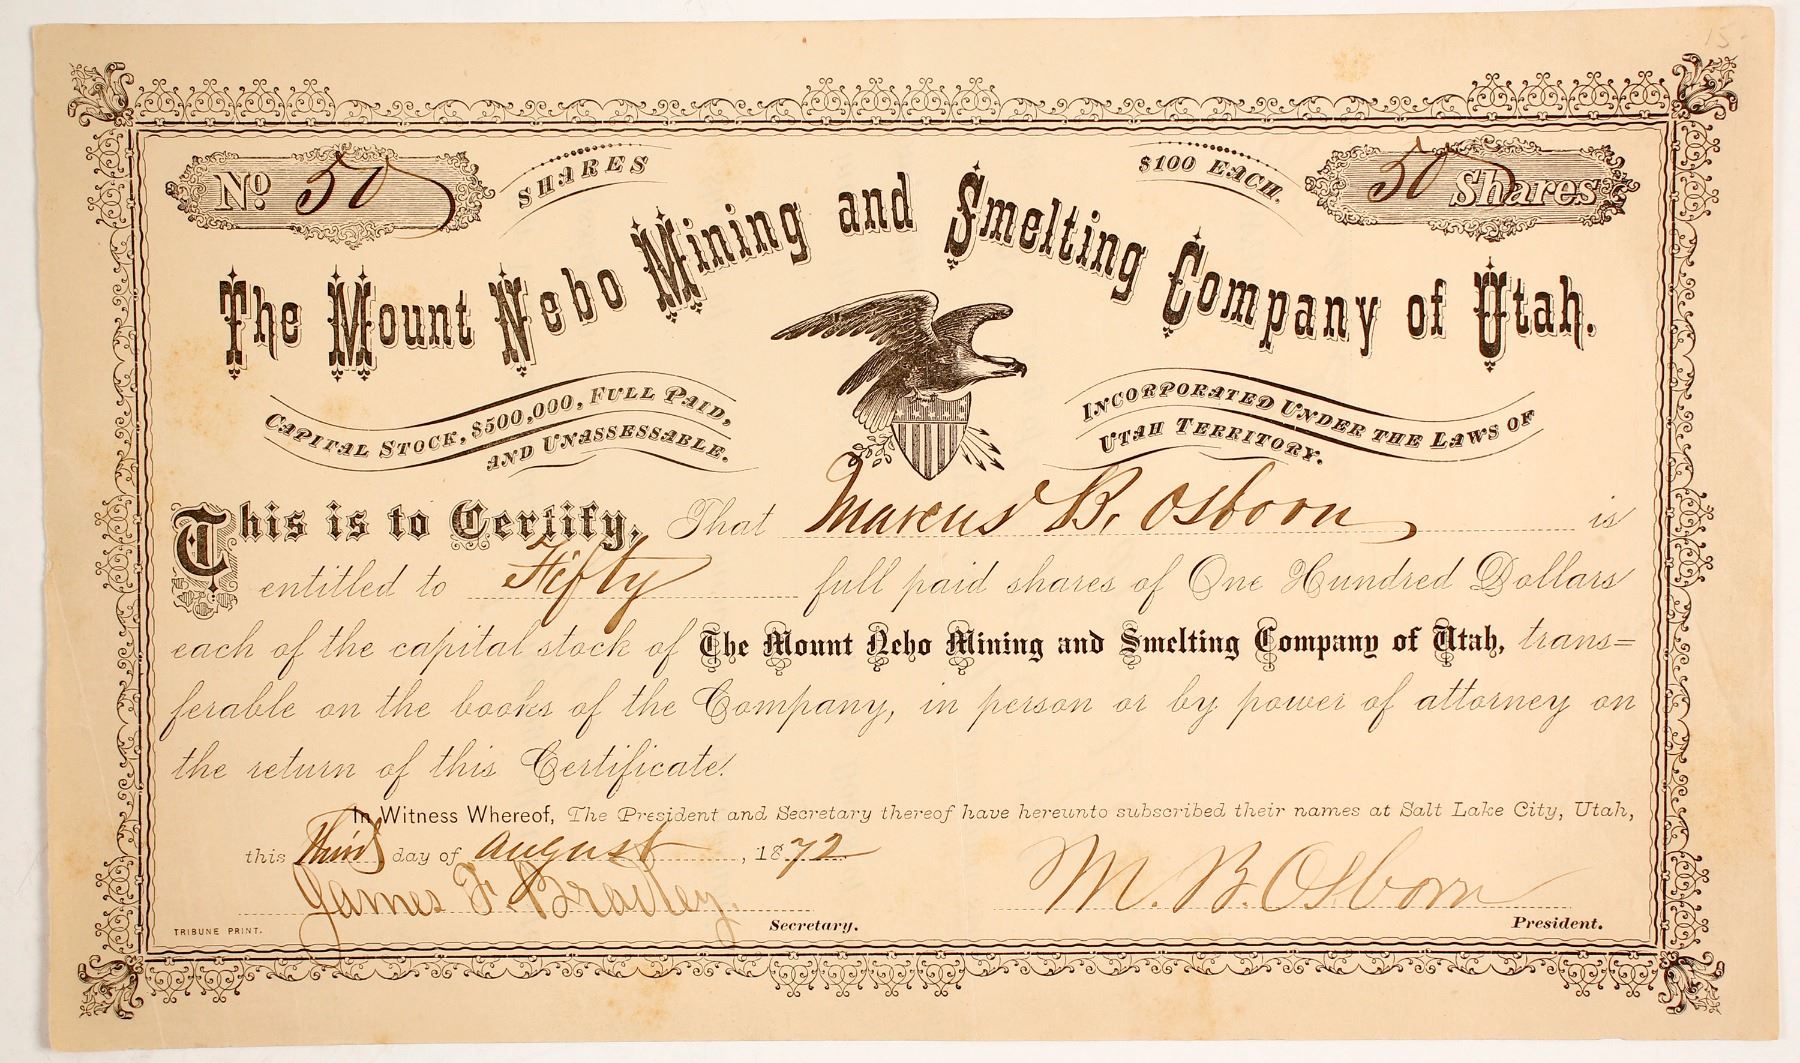 15-
No. 50
SHARES
$100 EACH.
50 Shares
The Mount Nebo Mining and Smelting Company of Utah.
CAPITAL STOCK, $500,000, FULL PAID,
AND UNASSESSABLE.
INCORPORATED UNDER THE LAWS OF
UTAH TERRITORY.
This is to Certify, That Marcus B. Osborn is
entitled to Fifty full paid shares of One Hundred Dollars
each of the capital stock of The Mount Nebo Mining and Smelting Company of Utah, trans=
ferable on the books of the Company, in person or by power of attorney on
the return of this Certificate.
In Witness Whereof, The President and Secretary thereof have hereunto subscribed their names at Salt Lake City, Utah,
this Third day of August, 1872
James F. Bradley.
Secretary.
M. B. Osborn
President.
TRIBUNE PRINT.